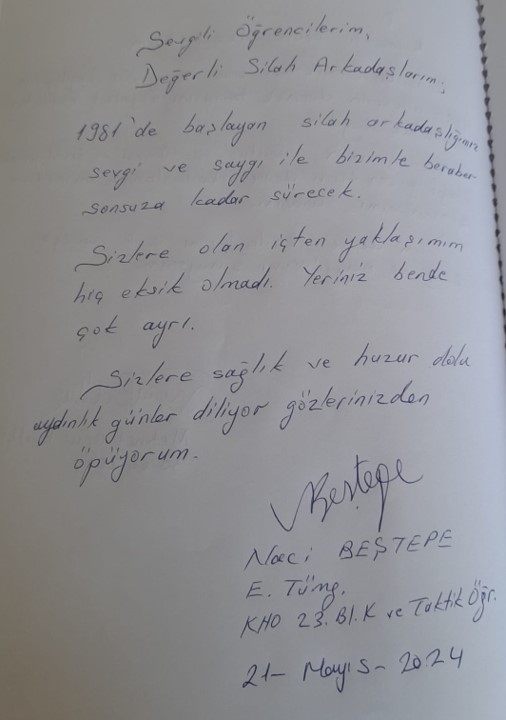 Sevgili Öğrencilerim,
Değerli Silah Arkadaşlarım;
1981'de başlayan silah arkadaşlığımız
sevgi ve saygı ile bizimle beraber
sonsuza kadar sürecek.
Sizlere olan içten yaklaşımım
hiç eksik olmadı. Yeriniz bende
çok ayrı.
Sizlere sağlık ve huzur dolu
aydınlık günler diliyor gözlerinizden
öpüyorum.
Beştepe
Naci BEŞTEPE
E. Tümg.
KHO 23. Bl. K ve Taktik Öğr.
21- Mayıs - 2024